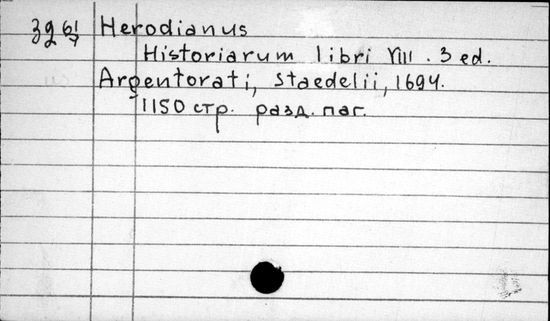 Herodianus
Historiarum libri VIII. 3 ed.
Argentorati, Staedelii, 1694.
1150 стр. разд. паг.